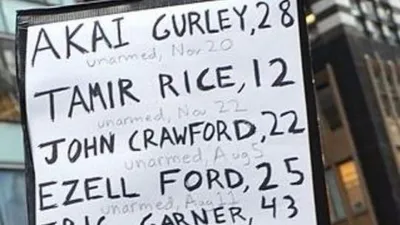 AKAI GURLEY, 28
unarmed, Nov 20
TAMIR RICE, 12
unarmed, Nov 22
JOHN CRAWFORD, 22
unarmed, Aug 5
EZELL FORD, 25
unarmed, Aug 11
ERIC GARNER, 43